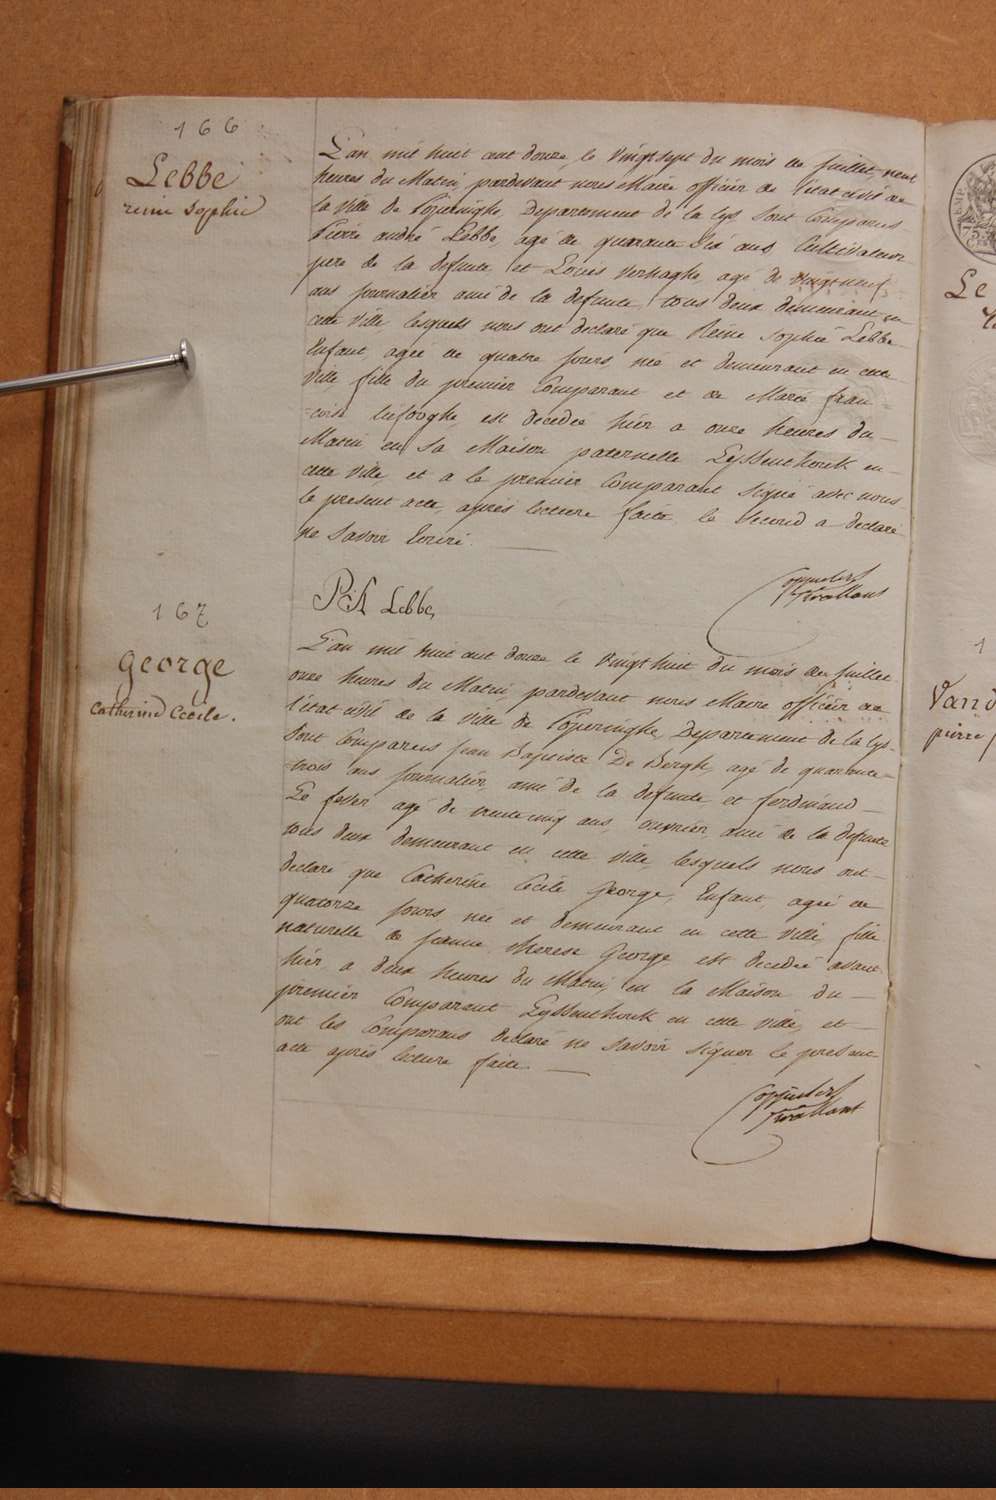 166
Lebbe
reine Sophie
L'an mil huit cent douze, le vingt sept du mois de Juillet, neuf
heures du Matin, pardevant nous Maire officier de l'etat civil de
la ville de Poperinghe, Departement de la Lys, sont Comparus
Pierre andré Lebbe, agé de quarante six ans, Cultivateur
pere de la defunte, et Louis Verhaghe, agé de vingt neuf
ans Journalier ami de la defunte, tous deux demeurant en
cette ville, lesquels nous ont declaré que Reine Sophie Lebbe
Enfant, agée de quatre Jours, née et demeurant en cette
ville fille du premier Comparant et de Marie fran=
=coise est decedée hier a onze heures du
Matin en sa Maison paternelle Eyssenhouk en
cette ville, et a le premier Comparant signé avec nous
le present acte, après lecture faite le second a declaré
ne savoir Ecrire.
PA Lebbe,
167
George
catherine Cecile.
L'an mil huit cent douze le vingt huit du mois de Juillet
onze heures du Matin, pardevant nous Maire officier de
l'etat civil de la ville de Poperinghe, Departement de la Lys
sont Comparus Jean Baptiste De Bergh, agé de quarante
trois ans Journalier, ami de la defunte, et ferdinand
Le fever agé de trente cinq ans, ouvrier, ami de la defunte
tous deux demeurant en cette ville, lesquels nous ont
declaré que Catherine Cecile George, Enfant, agée de
quatorze Jours, née et demeurant en cette ville, fille
naturelle de Jeanne therese George est decedée avant
hier, a deux heures du Matin, en la Maison du
premier Comparant Eyssenhouk en cette ville, et
ont les Comparans declaré ne savoir signer le present
acte après lecture faite.
Le
Vand
pierre